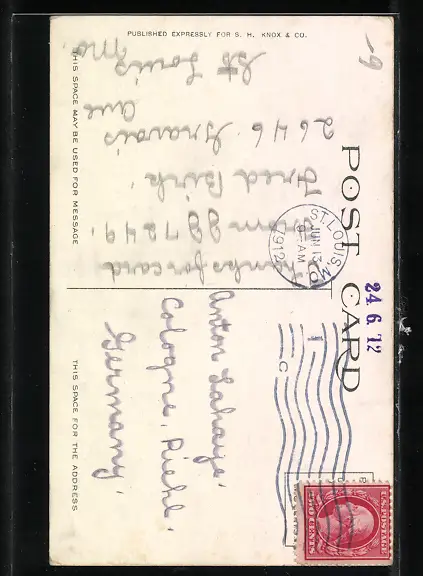 PUBLISHED EXPRESSLY FOR S. H. KNOX & CO.
POST CARD
THIS SPACE MAY BE USED FOR MESSAGE
THIS SPACE FOR THE ADDRESS
Thanks for card
from 
Fred Birk
2646 Gravois
Ave
St Louis
Mo
ST. LOUIS, MO.
JUN 13
9 AM
1912
24.6.12
Anton Lahaye.
Cologne, Riehl.
Germany.
U.S. POSTAGE
TWO CENTS